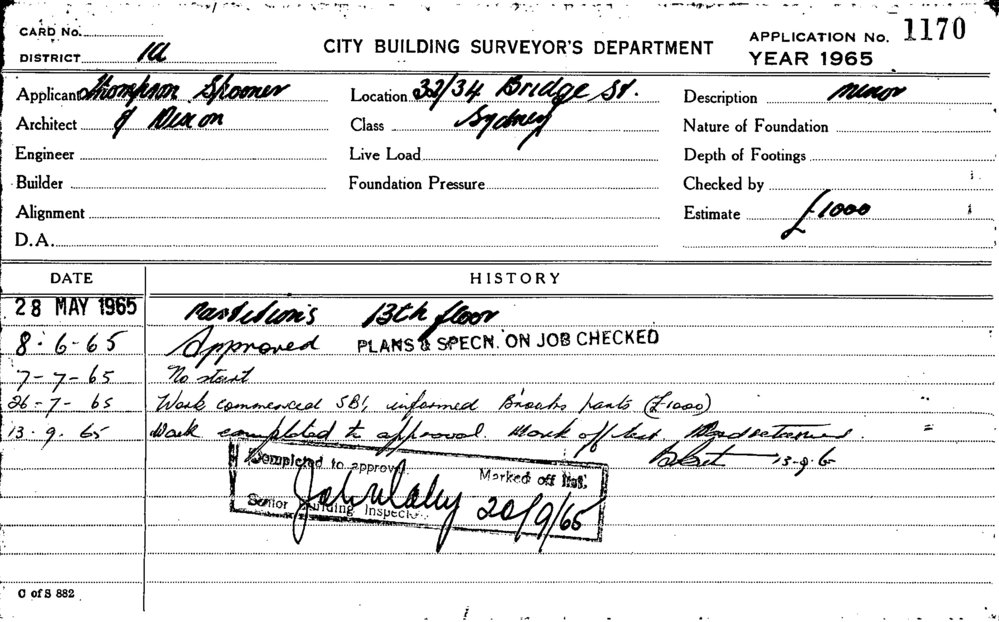 CARD No.
DISTRICT
CITY BUILDING SURVEYOR'S DEPARTMENT
APPLICATION No. 1170
YEAR 1965
Applicant Thompson Spooner
Location 32/34 Bridge St.
Description minor
Architect J Dixon
Class Sydney
Nature of Foundation
Engineer
Live Load
Depth of Footings
Builder
Foundation Pressure
Checked by
Alignment
Estimate £1000
D.A.
DATE HISTORY
28 MAY 1965 13th floor
8-6-65 Approved PLANS & SPECN. ON JOB CHECKED
7-7-65 No start
26-7-65 Work commenced SBI, informed (£1000)
13.9.65 Work completed to approval. Mark off list
13-9-65
Completed to approval. Marked off list.
20/9/65
Senior Building Inspector
C of S 882